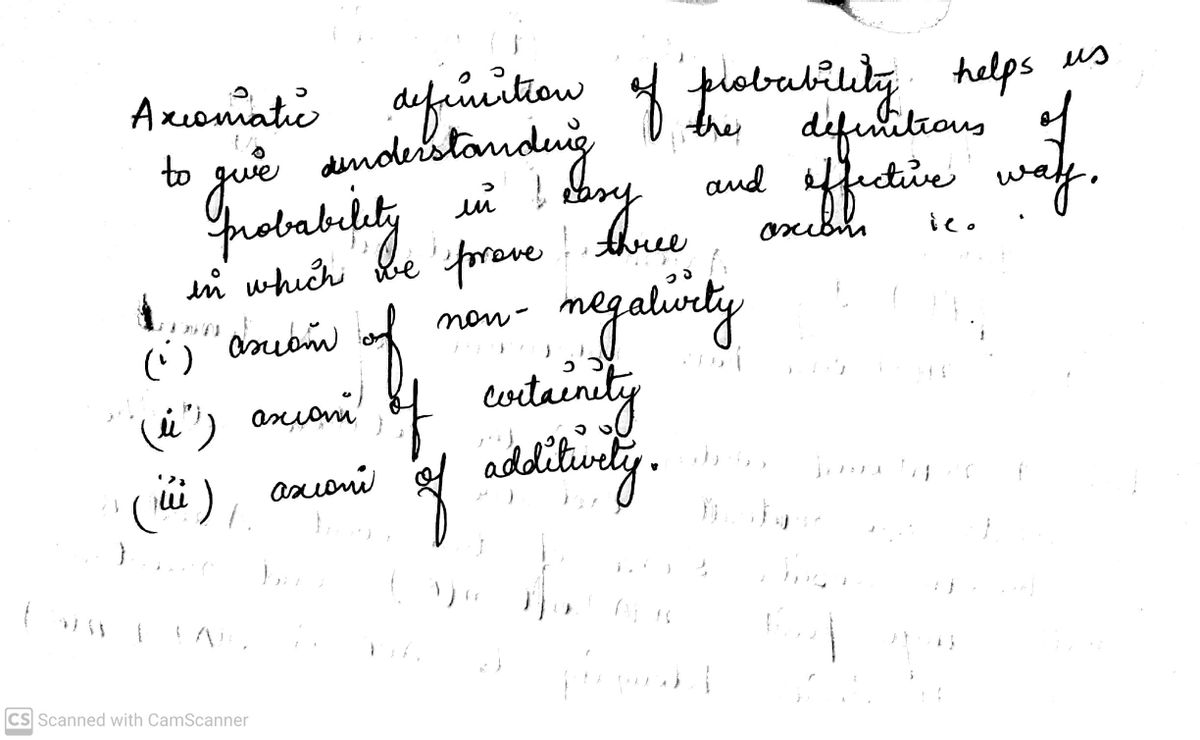 Axiomatic definition of probability helps us
to give understanding the definitions of
probability in easy and effective way.
in which we prove three axiom ie.
(i) axiom of non-negativity
(ii) axiom of certainity
(iii) axiom of additivity.
CS Scanned with CamScanner